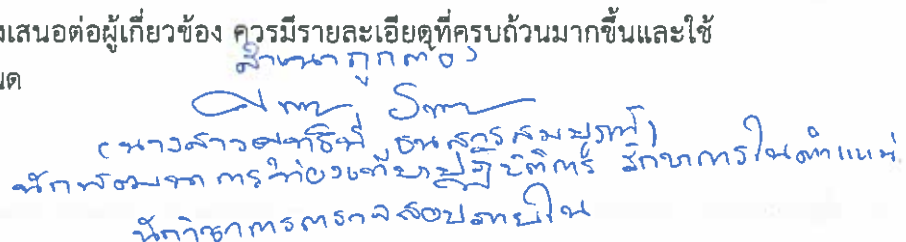 งเสนอต่อผู้เกี่ยวข้อง ควรมีรายละเอียดที่ครบถ้วนมากขึ้นและใช้
นด
สำเนาถูกต้อง
(นางสาว
นักพัฒนาการท่องเที่ยวปฏิบัติการ รักษาการในตำแหน่
นักวิชาการตรวจสอบภายใน